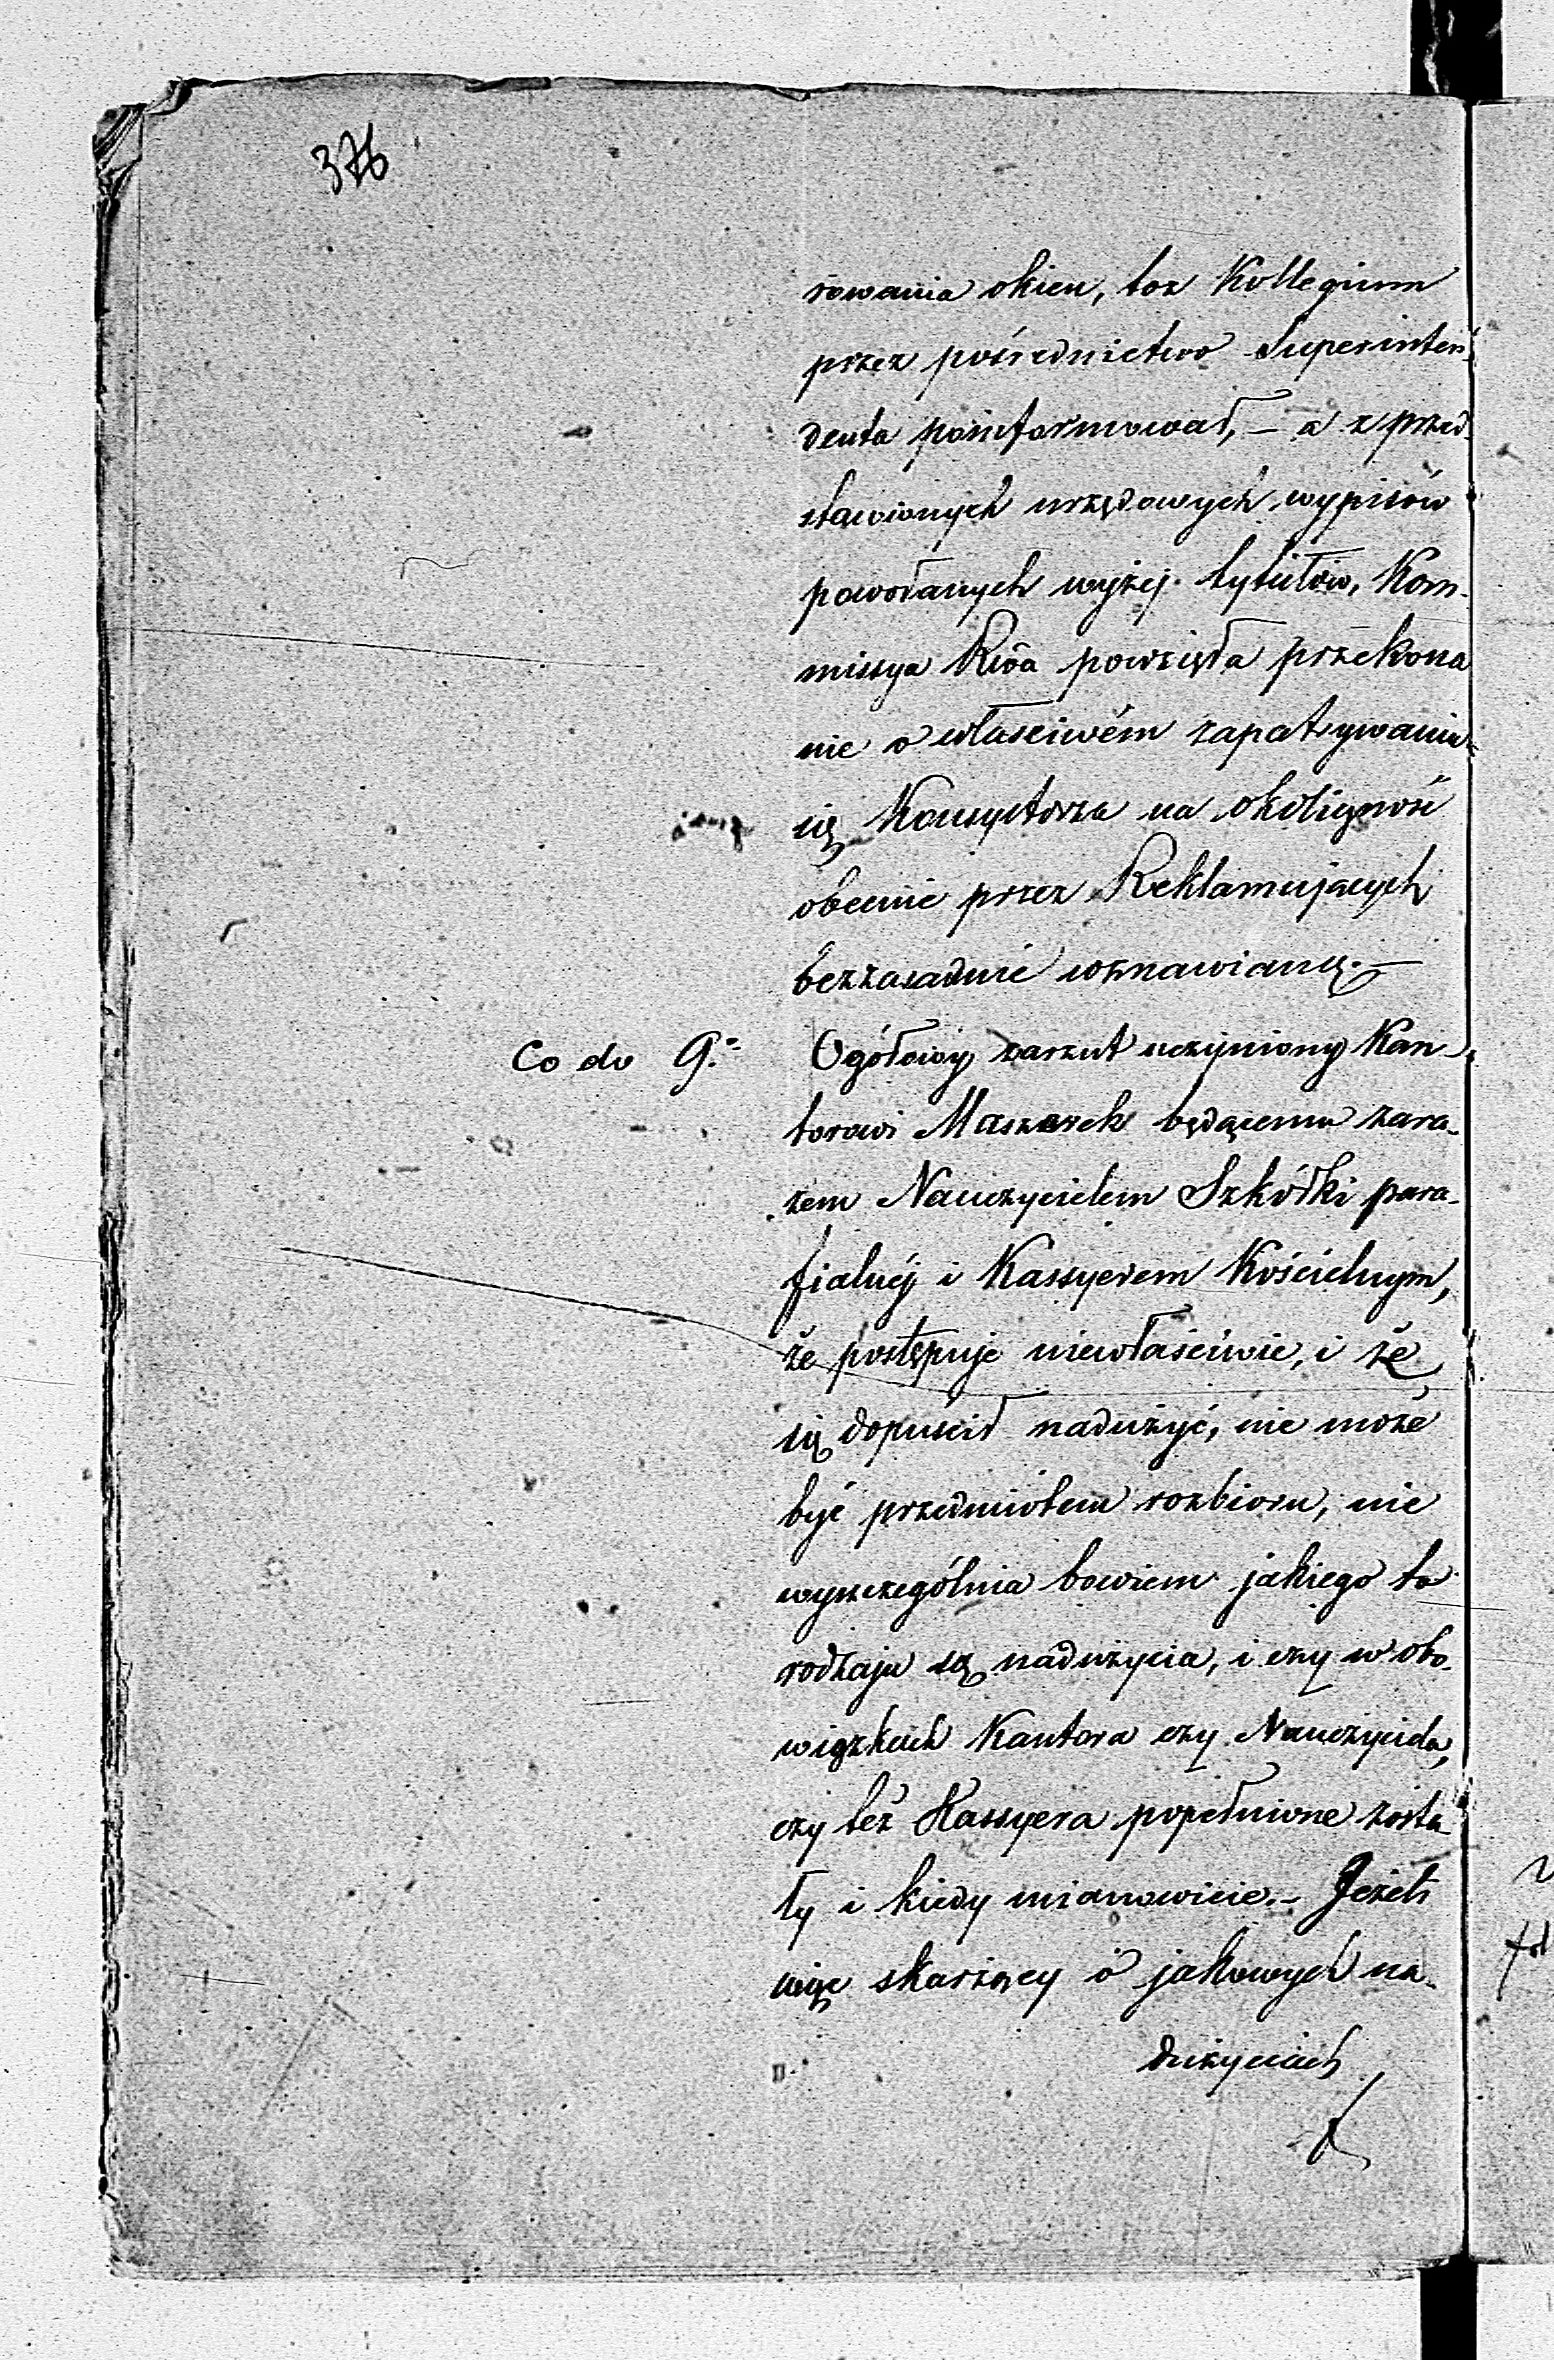 376
rowania okien, toż Kollegium
przez pośrednictwo Superinten-
denta poinformował, – a z przed-
stawionych urzędowych wypisów
powołanych wyżej tytułów, Kom-
missya Rwa powzięła przekona
nie o właściwém zapatrywaniu
się Konsystorza na okoliczność
obecnie przez Reklamujących
bezzasadnie wznawianą. –
Co do 9.º Ogółowy zarzut uczyniony Kan-
torowi Maszarek będącemu zara-
zem Nauczycielem Szkółki para-
fialnéj i Kassyerem Kościelnym,
że postępuje niewłaściwie, i że
się dopuścił nadużyć, nie może
być przedmiotem rozbioru, nie
wyszczególnia bowiem jakiego to
rodzaju są nadużycia, i czy w obo-
wiązkach Kantora czy Nauczyciela,
czy też Kassyera popełnione zosta-
ły i kiedy mianowicie. – Jeżeli
więc skarżący o jakowych na-
dużyciach